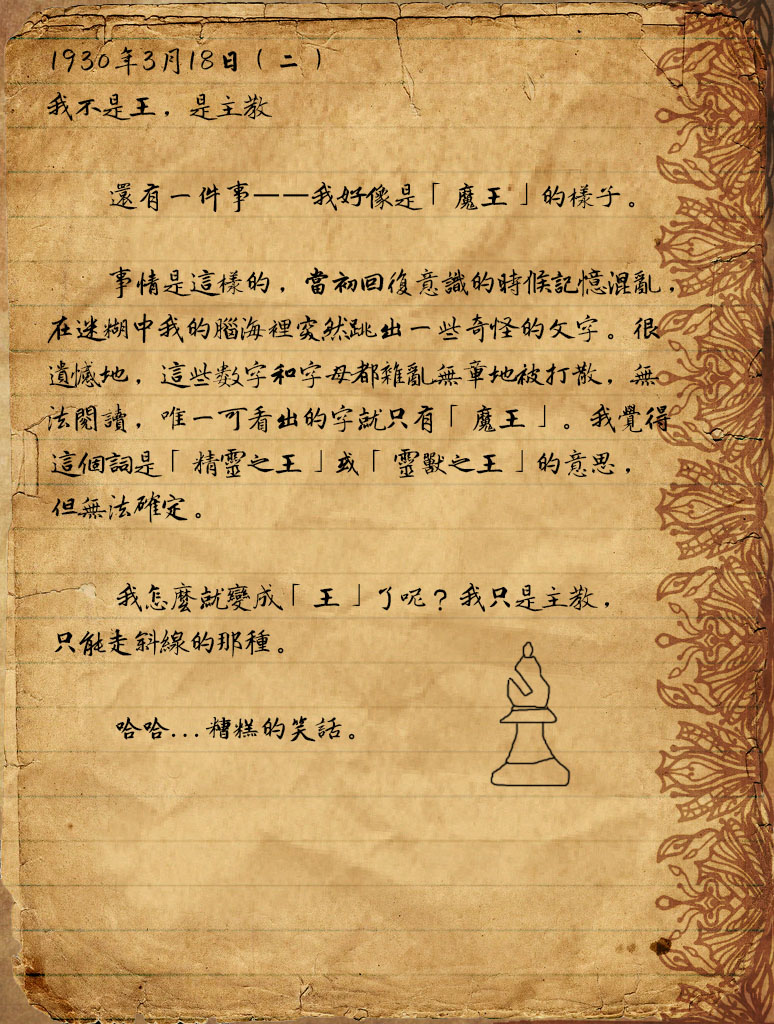 1930年3月18日（二）
我不是王，是主教
還有一件事——我好像是「魔王」的樣子。
事情是這樣的，當初回復意識的時候記憶混亂，
在迷糊中我的腦海裡突然跳出一些奇怪的文字。很
遺憾地，這些数字和字母都雜亂無章地被打散，無
法閱讀，唯一可看出的字就只有「魔王」。我覺得
這個詞是「精靈之王」或「靈獸之王」的意思，
但無法確定。
我怎麼就變成「王」了呢？我只是主教，
只能走斜線的那種。
哈哈...糟糕的笑話。